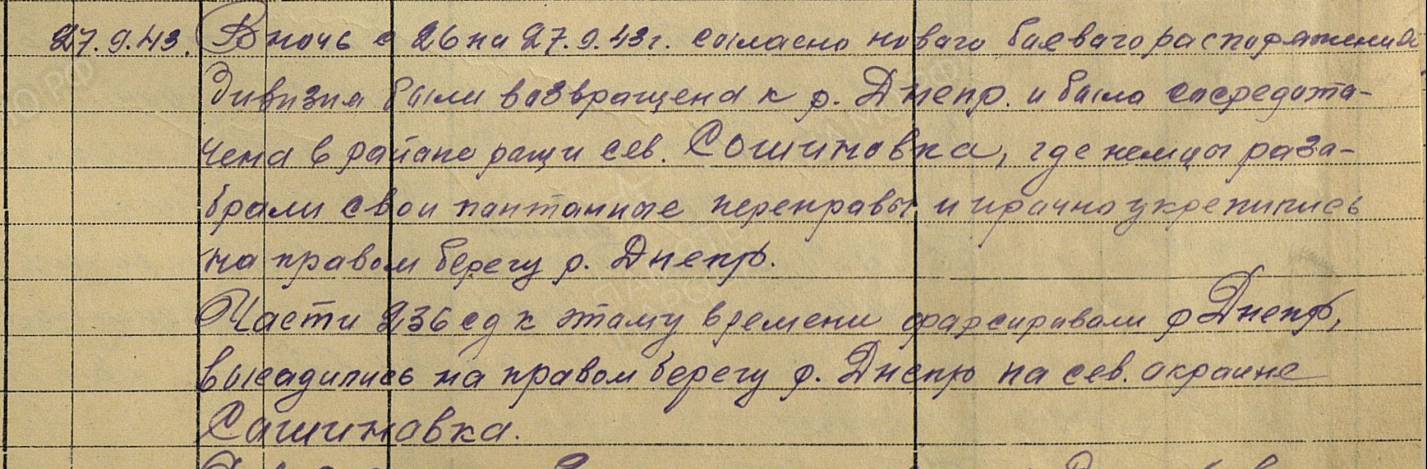 27.9.43. В ночь с 26 на 27.9.43г. согласно нового боевого распоряжения
дивизия была возвращена к р. Днепр. и была сосредото-
чена в районе рощи сев. Сошиновка, где немцы разо-
брали свои понтонные переправы и прочно укрепились
на правом берегу р. Днепр.
Части 236 сд к этому времени форсировали р Днепр,
высадились на правом берегу р. Днепр на сев. окраине
Сошиновка.